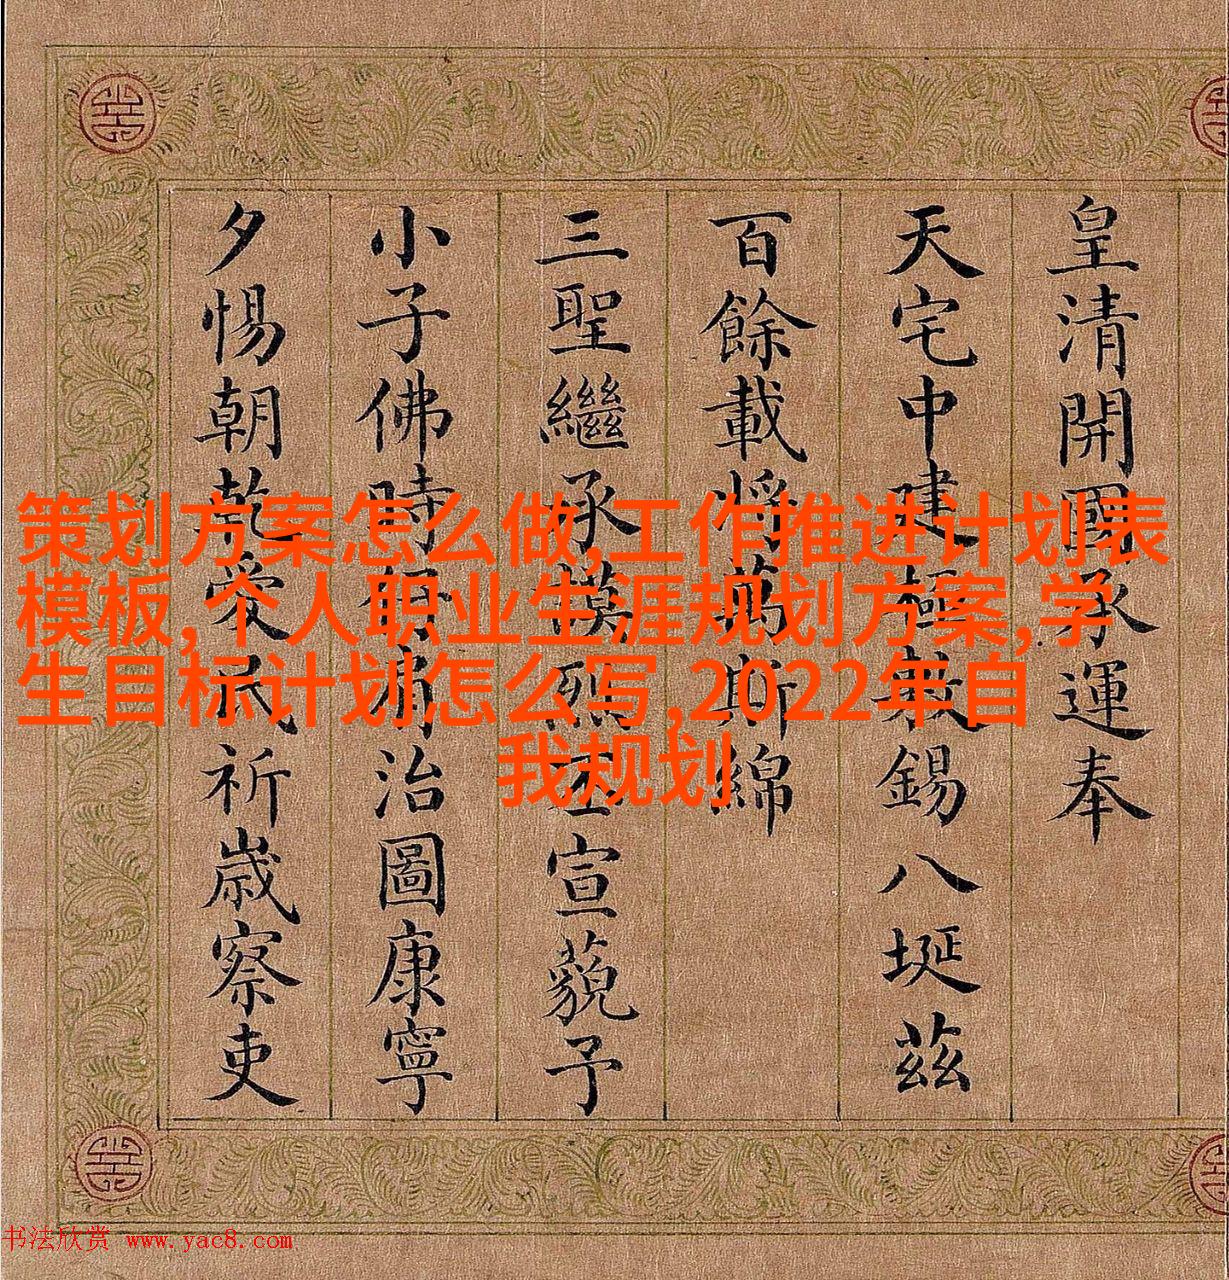 皇清開國承運奉
天宅中建極敷錫八埏茲
百餘載將萬斯綿
三聖繼承謨烈丕宣藐予
小子佛時仔肩治圖康寧
夕惕朝乾愛民祈歲察吏
策划方案怎么做,工作推进计划表
模板,个人职业生涯规划方案,学
生目标计划怎么写,2022年自
我规划
书法欣赏 www.yac8.com